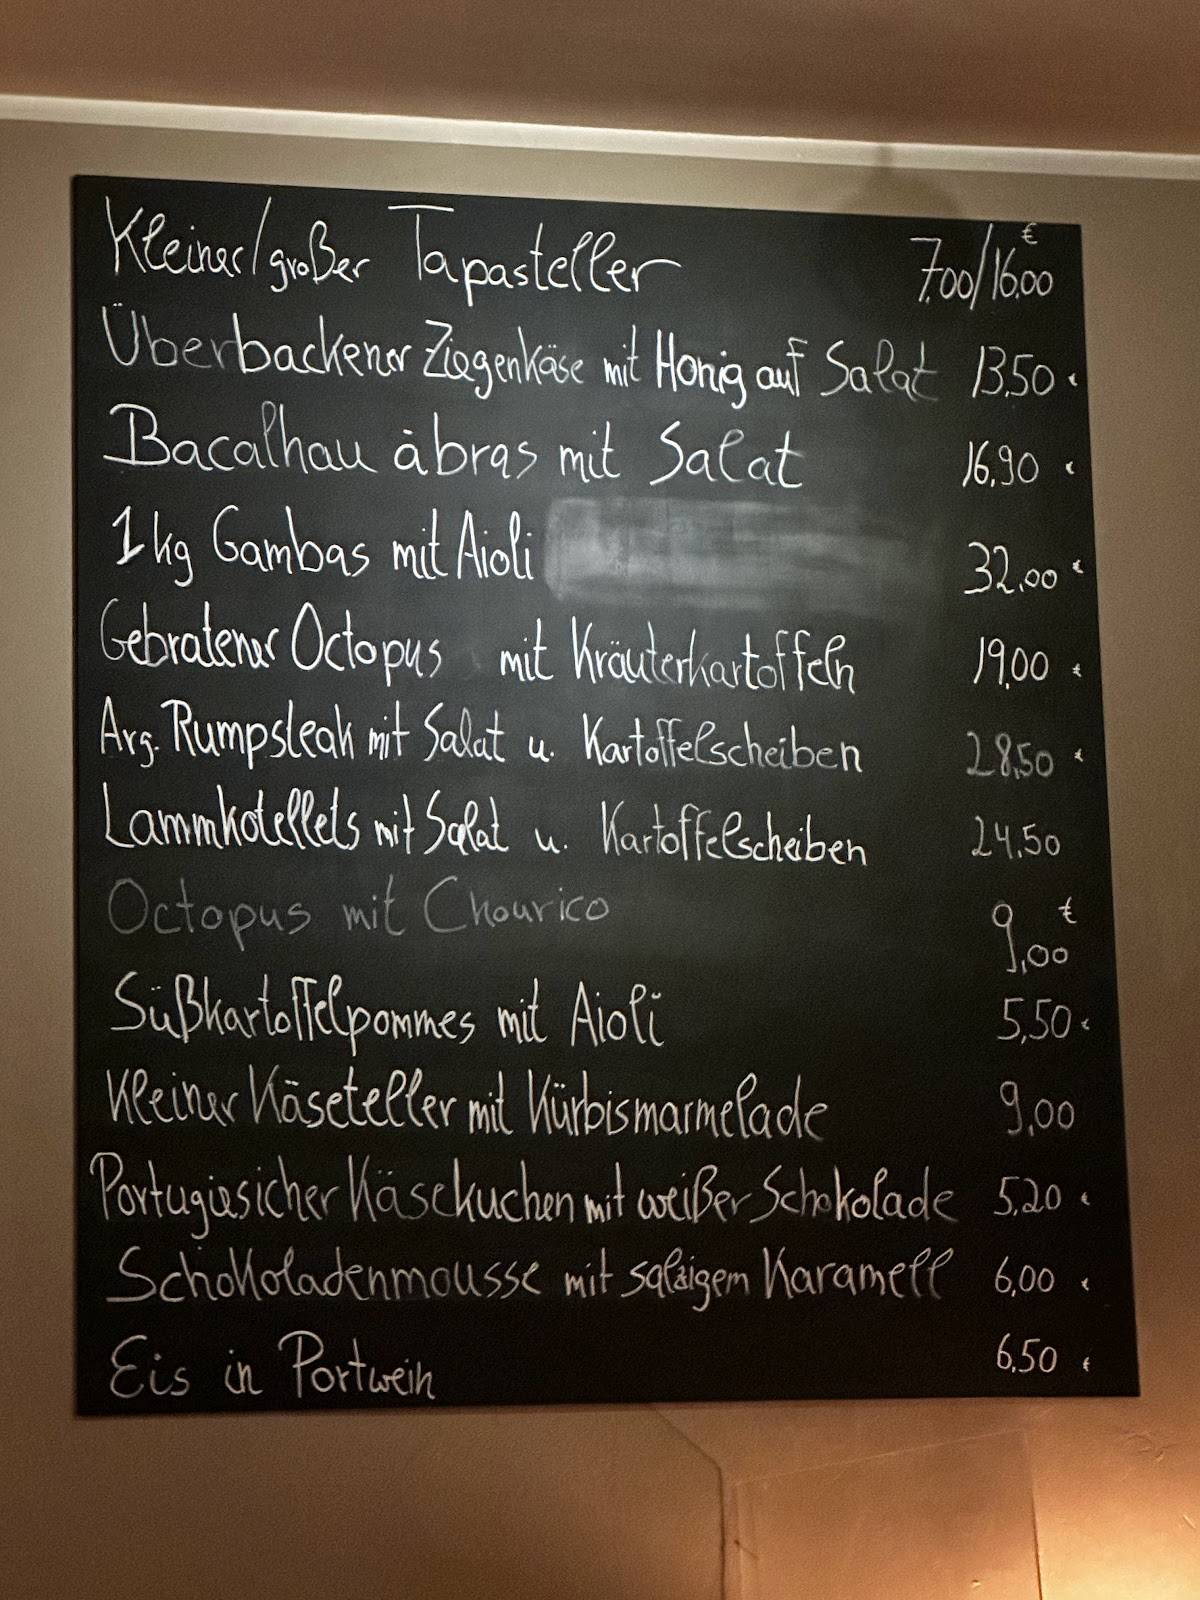 Kleiner/großer Tapasteller 7,00/16,00 €
Überbackener Ziegenkäse mit Honig auf Salat 13,50 €
Bacalhau àbras mit Salat 16,90 €
1 kg Gambas mit Aioli 32,00 €
Gebratener Octopus mit Kräuterkartoffeln 19,00 €
Arg. Rumpsteak mit Salat u. Kartoffelscheiben 28,50 €
Lammkotellets mit Salat u. Kartoffelscheiben 24,50
Octopus mit Chourico 9,00 €
Süßkartoffelpommes mit Aioli 5,50 €
Kleiner Käseteller mit Kürbismarmelade 9,00
Portugiesicher Käsekuchen mit weißer Schokolade 5,20 €
Schokoladenmousse mit salzigem Karamell 6,00 €
Eis in Portwein 6,50 €